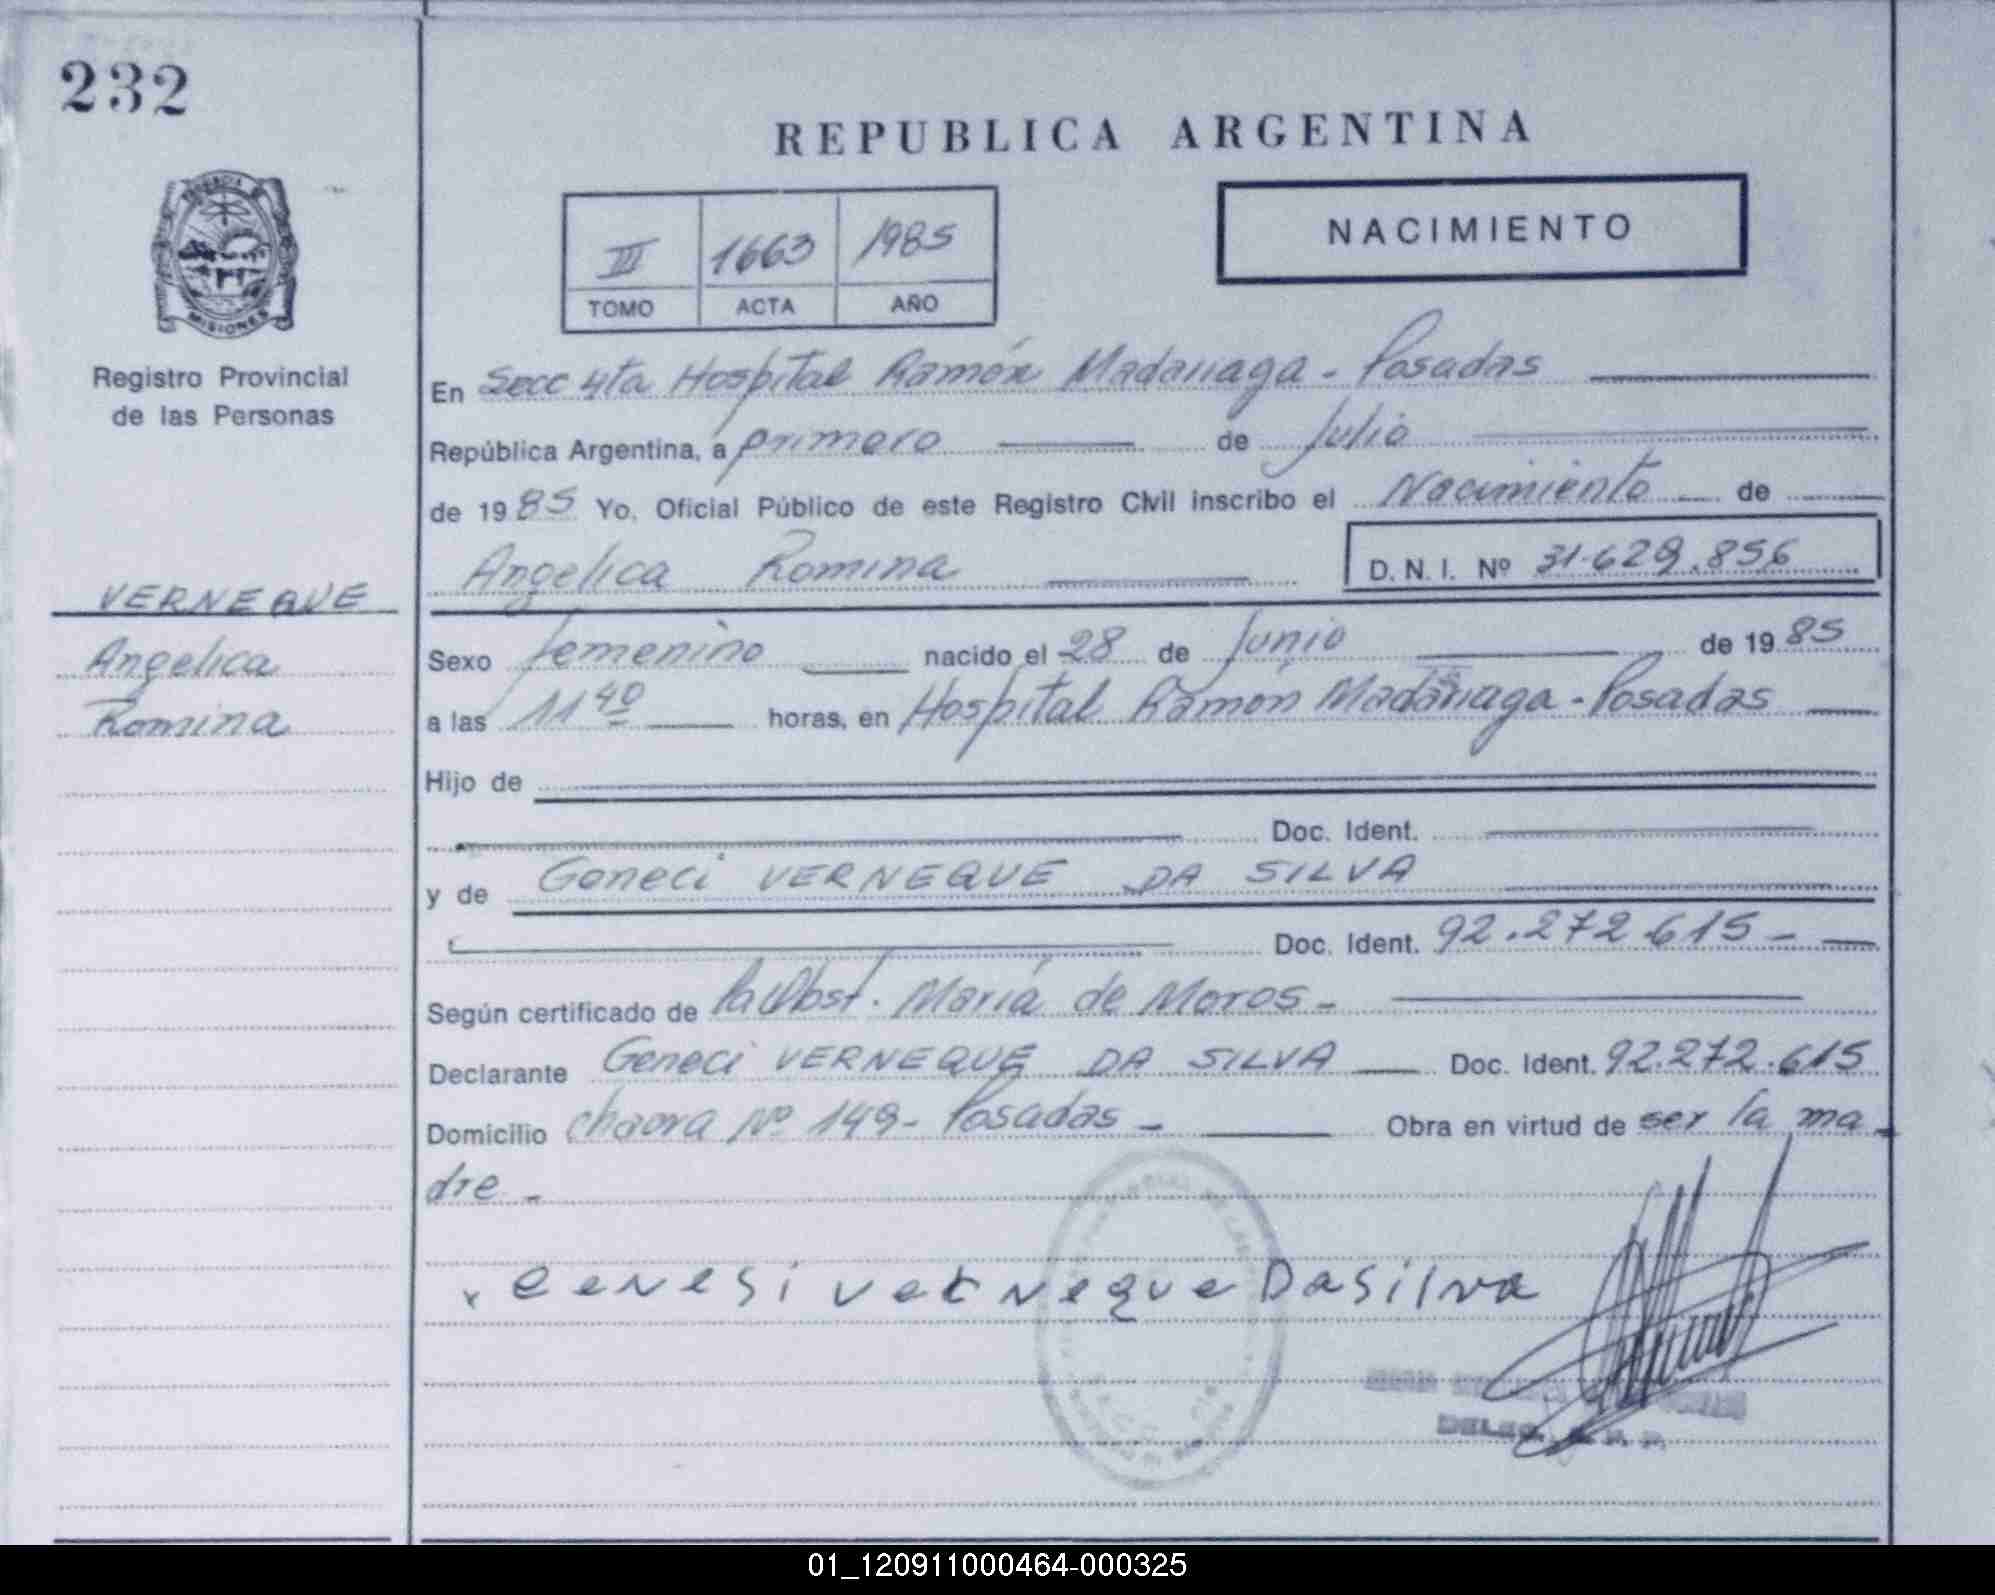 232
REPUBLICA ARGENTINA
III 1663 1985
TOMO ACTA AÑO
NACIMIENTO
MISIONES
Registro Provincial
de las Personas
VERNEQUE
Angelica
Romina
En Secc 4ta Hospital Ramón Madariaga - Posadas
República Argentina, a primero de Julio
de 1985 Yo, Oficial Público de este Registro Civil inscribo el Nacimiento de
Angelica Romina D.N.I. Nº 31.629.856
Sexo femenino nacido el 28 de Junio de 1985
a las 11 40 horas, en Hospital Ramón Madariaga - Posadas
Hijo de
Doc. Ident.
y de Geneci VERNEQUE DA SILVA
Doc. Ident. 92.272.615 -
Según certificado de la Obst. María de Moros -
Declarante Geneci VERNEQUE DA SILVA Doc. Ident. 92.272.615
Domicilio chacra Nº 149 - Posadas - Obra en virtud de ser la ma-
dre -
x Cenesi verneque Da Silva
01_120911000464-000325